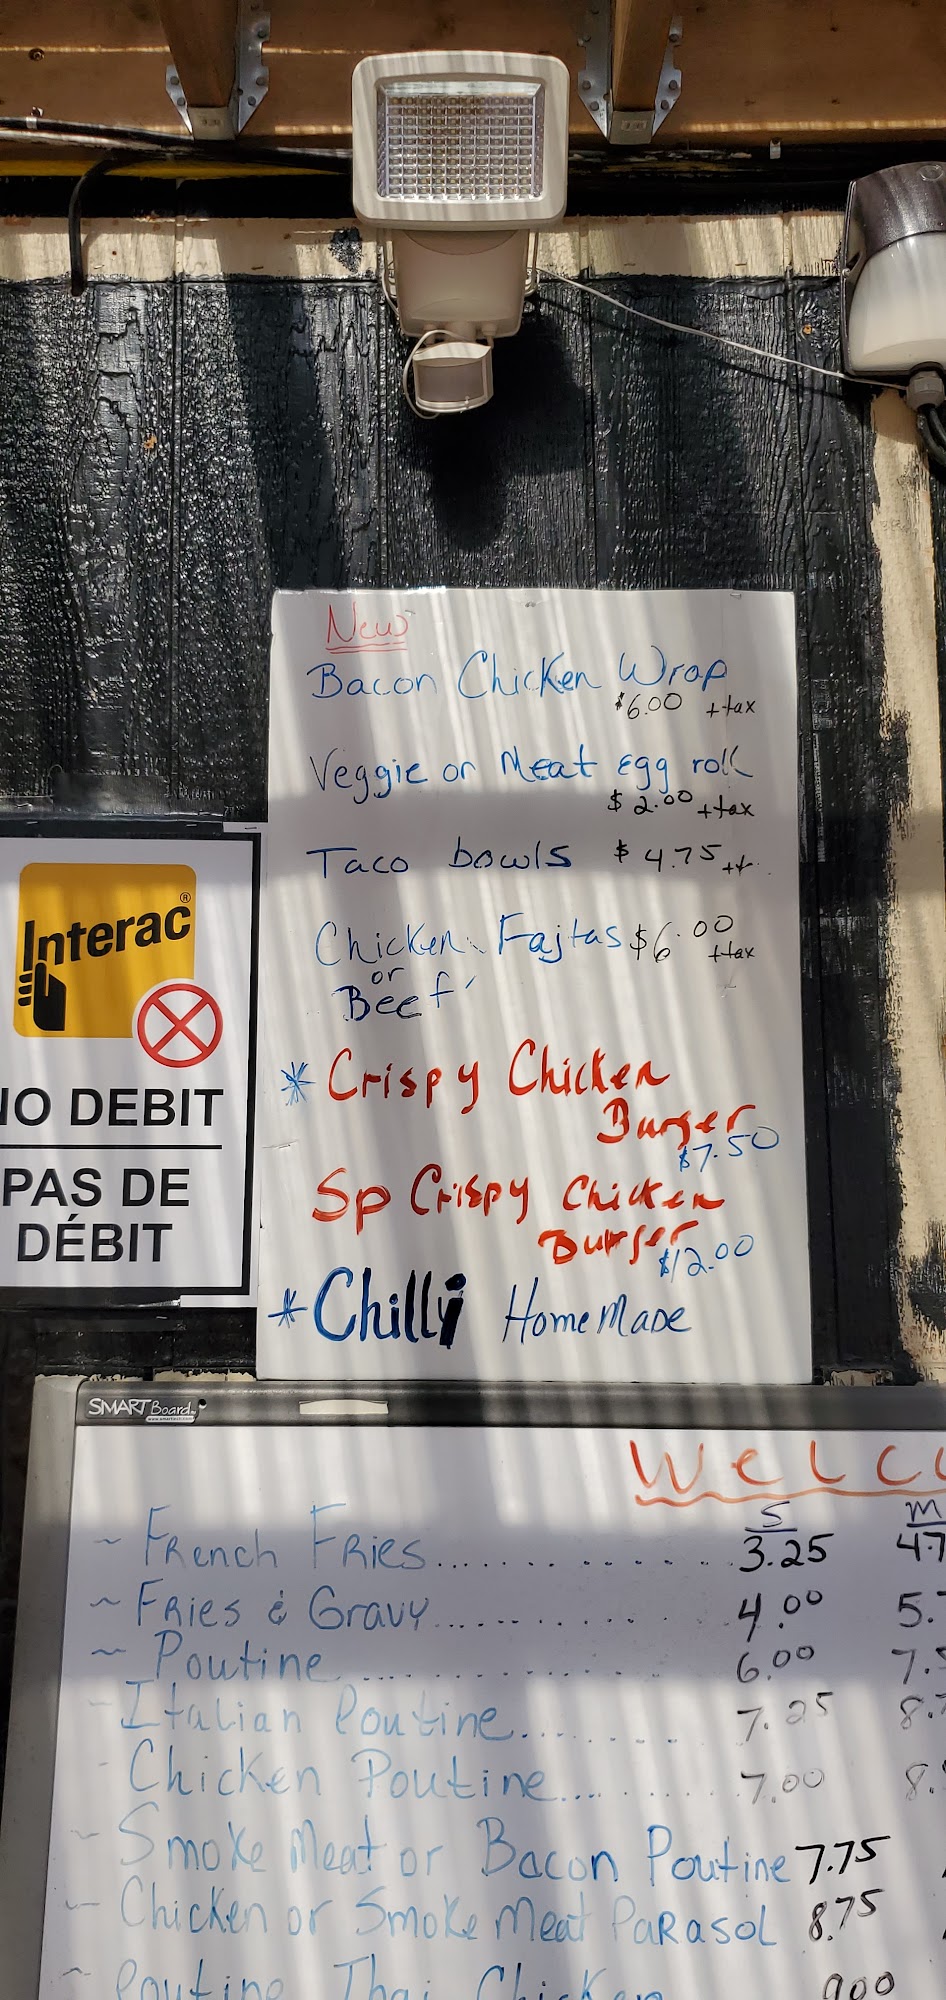 New
Bacon Chicken Wrap
$6.00 + tax
Veggie or Meat egg roll
$2.00 + tax
Taco bowls $4.75 + t
Chicken Fajtas $6.00
+ tax
or
Beef
* Crispy Chicken
Burger
$7.50
Sp Crispy Chicken
Burger
$12.00
* Chilli HomeMade
Interac®
NO DEBIT
PAS DE
DÉBIT
SMART Board
WELC
S M
~ French Fries.............. 3.25 4.7
~ Fries & Gravy............ 4.00 5.
~ Poutine.............. 6.00 7.
- Italian Poutine........ 7.25 8.
- Chicken Poutine........ 7.00 8.
~ Smoke Meat or Bacon Poutine 7.75
~ Chicken or Smoke Meat Parasol 8.75
~ Poutine Thai Chicken 900